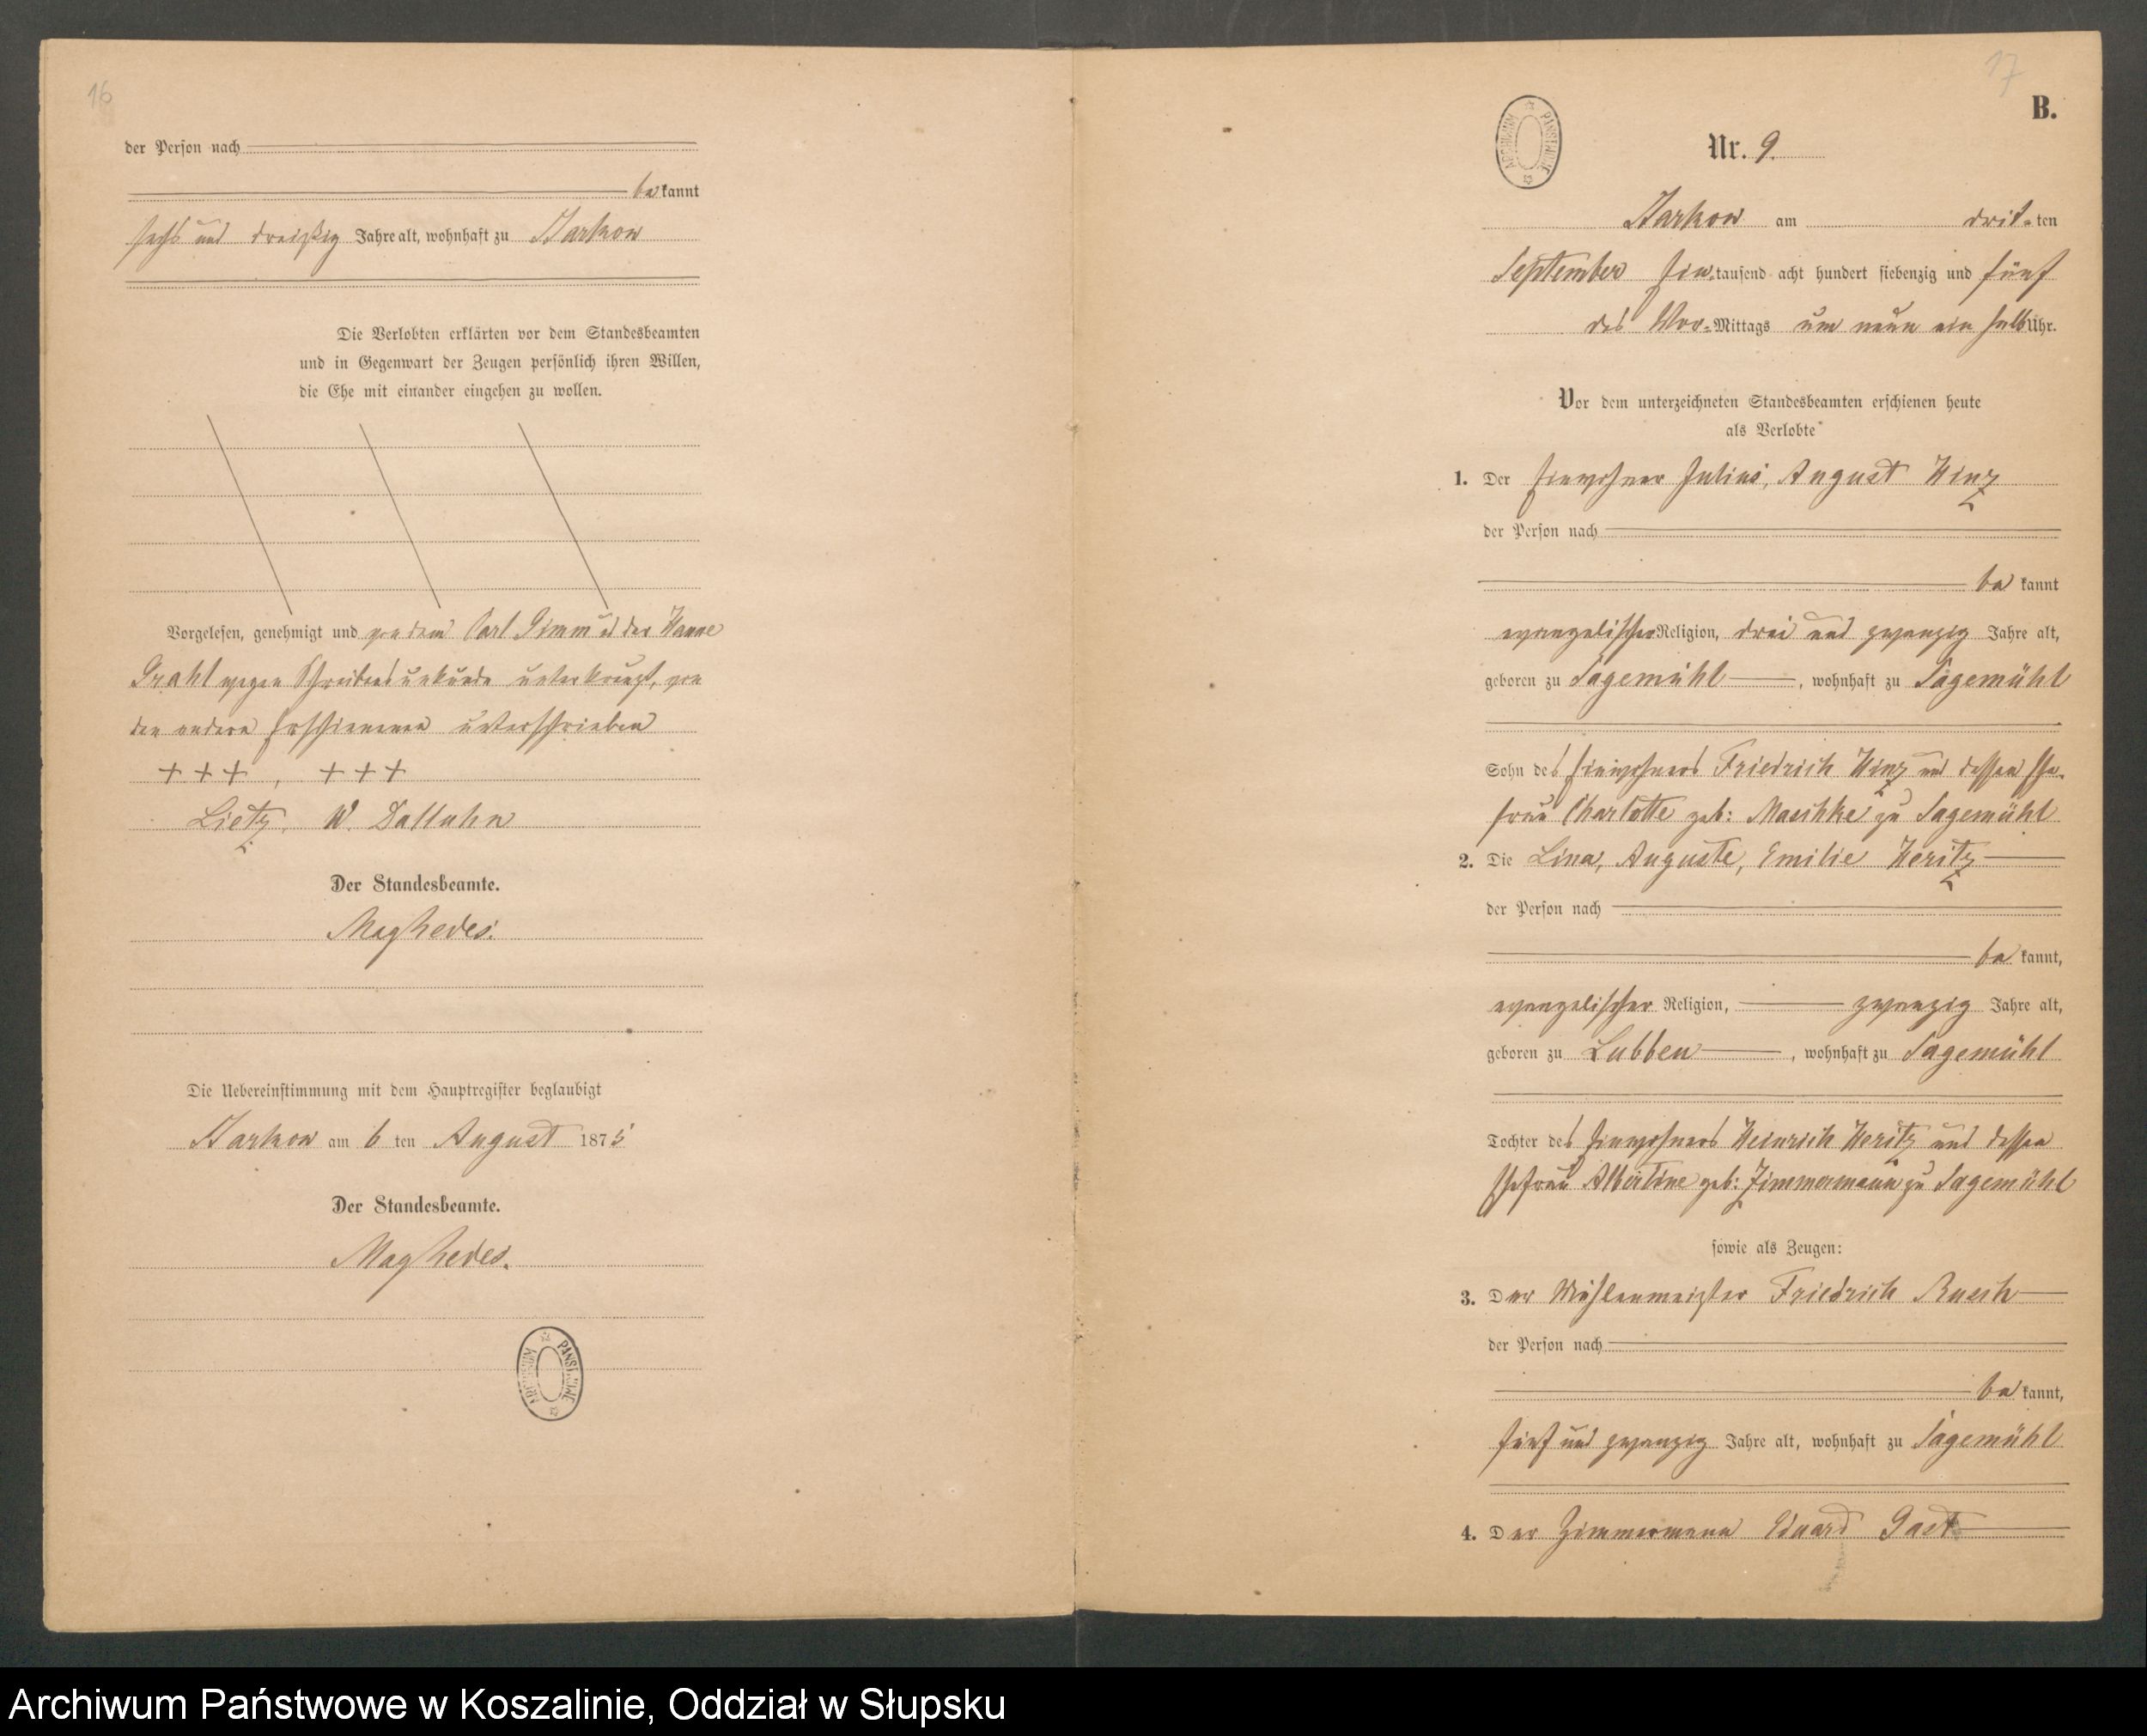 16
der Person nach
bekannt
sechs und dreißig Jahre alt, wohnhaft zu Starkow
Die Verlobten erklärten vor dem Standesbeamten
und in Gegenwart der Zeugen persönlich ihren Willen,
die Ehe mit einander eingehen zu wollen.
Vorgelesen, genehmigt und von dem Carl Timm u der Hanne
Grahl wegen Schreibensunkunde unterkreuzt, von
den andern Erschienenen unterschrieben
+++, +++
Lietz. W. Dalluhn
Der Standesbeamte.
Die Uebereinstimmung mit dem Hauptregister beglaubigt
Starkow am 6 ten August 1875
Der Standesbeamte.
ARCHIWUM PAŃSTWOWE
17
B.
ARCHIWUM PAŃSTWOWE
Nr. 9.
Starkow am drit-ten
September Ein tausend acht hundert siebenzig und fünf
des Vor-Mittags um neun ein halb Uhr.
Vor dem unterzeichneten Standesbeamten erschienen heute
als Verlobte
1. Der Einwohner Julius, August Hinz
der Person nach
bekannt
evangelischer Religion, drei und zwanzig Jahre alt,
geboren zu Sagemühl, wohnhaft zu Sagemühl
Sohn des Einwohners Friedrich Hinz und dessen Ehe-
frau Charlotte geb: Maschke zu Sagemühl
2. Die Lina, Auguste, Emilie Heritz
der Person nach
bekannt,
evangelischer Religion, zwanzig Jahre alt,
geboren zu Lubben, wohnhaft zu Sagemühl
Tochter des Einwohners Heinrich Heritz und dessen
Ehefrau Albertine geb: Zimmermann zu Sagemühl
sowie als Zeugen:
3. Der Mühlenmeister Friedrich Rusch
der Person nach
bekannt,
fünf und zwanzig Jahre alt, wohnhaft zu Sagemühl
4. Der Zimmermann Eduard Gast
Archiwum Państwowe w Koszalinie, Oddział w Słupsku